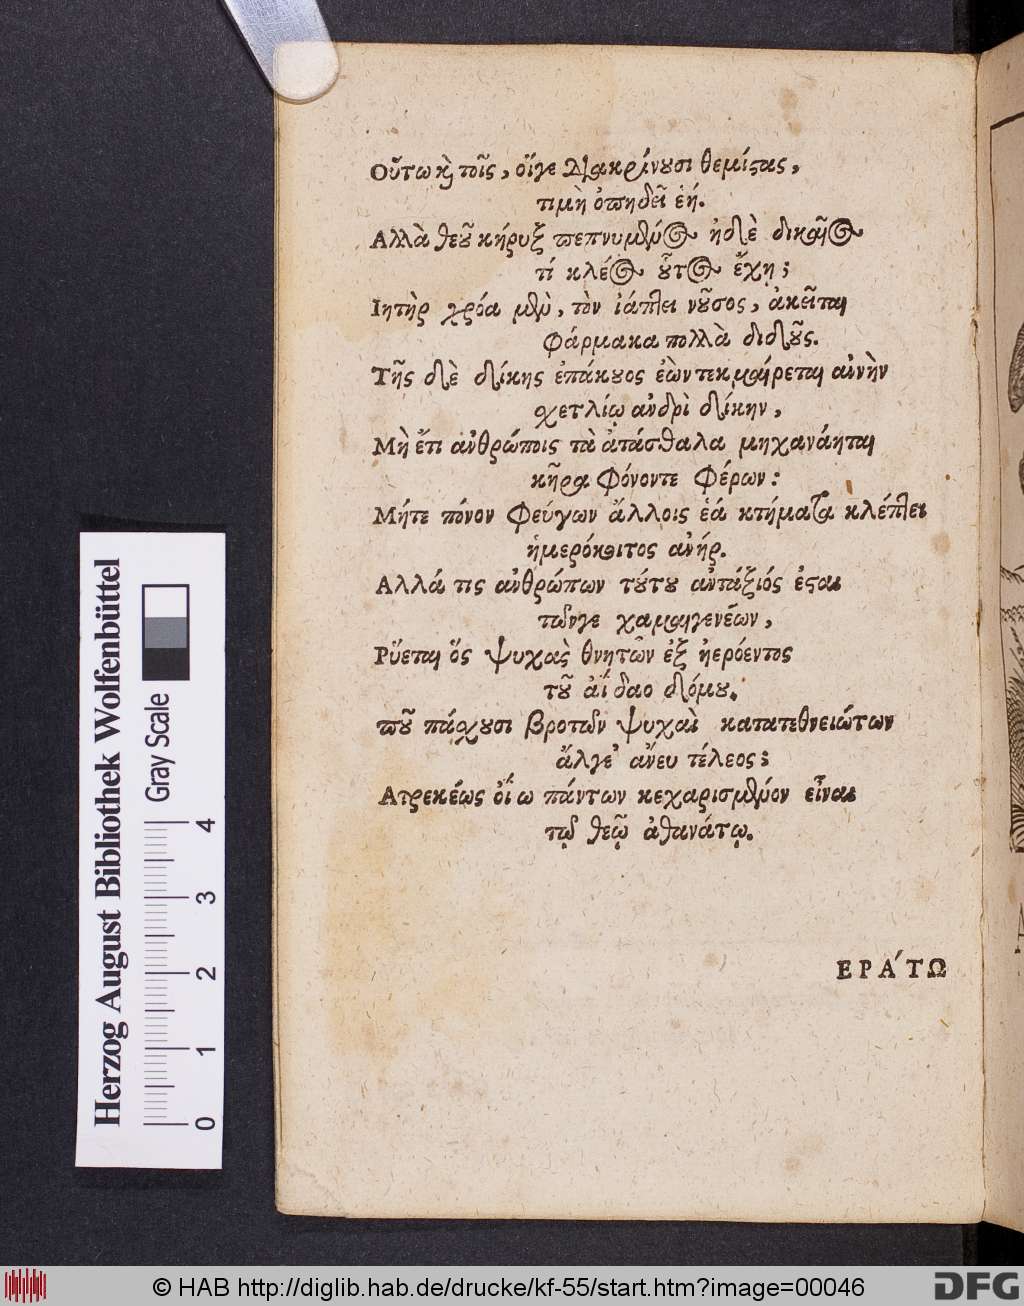 Οὕτω καὶ τοῖς, οἵγε διακρίνουσι θέμιςας,
τιμὴ ὀπηδεῖ ἑή.
Αλλὰ θεοῦ κήρυξ πεπνυμένος ἠδὲ δικαῖος
τί κλέος οὗτος ἔχῃ;
Ιητὴρ χρόα μὲν, τὸν ἰάπτει νοῦσος, ἀκεῖται
φάρμακα πολλὰ διδοῦς.
Τῆς δὲ δίκης ἐπάκουος ἐὼν τεκμαίρεται αἰνὴν
σχετλίῳ ἀνδρὶ δίκην,
Μὴ ἔτι ἀνθρώποις τὰ ἀτάσθαλα μηχανάηται
κῆρα φόνοντε φέρων:
Μήτε πόνον φεύγων ἄλλοις ἑά κτήματα κλέπτει
ἡμερόκοιτος ἀνήρ.
Αλλά τις ἀνθρώπων τούτου ἀντάξιός ἐςαι
τῶνγε χαμαιγενέων,
Ρύεται ὅς ψυχὰς θνητῶν ἐξ ἠερόεντος
τοῦ ἀΐδαο δόμου.
ποῦ πάσχουσι βροτῶν ψυχαὶ κατατεθνειώτων
ἄλγε' ἄνευ τέλεος;
Ατρεκέως οἵ ω πάντων κεχαρισμένον εἶναι
τῷ θεῷ ἀθανάτῳ.
ΕΡΑΤΩ
Herzog August Bibliothek Wolfenbüttel
Gray Scale
0 1 2 3 4
© HAB http://diglib.hab.de/drucke/kf-55/start.htm?image=00046
DFG